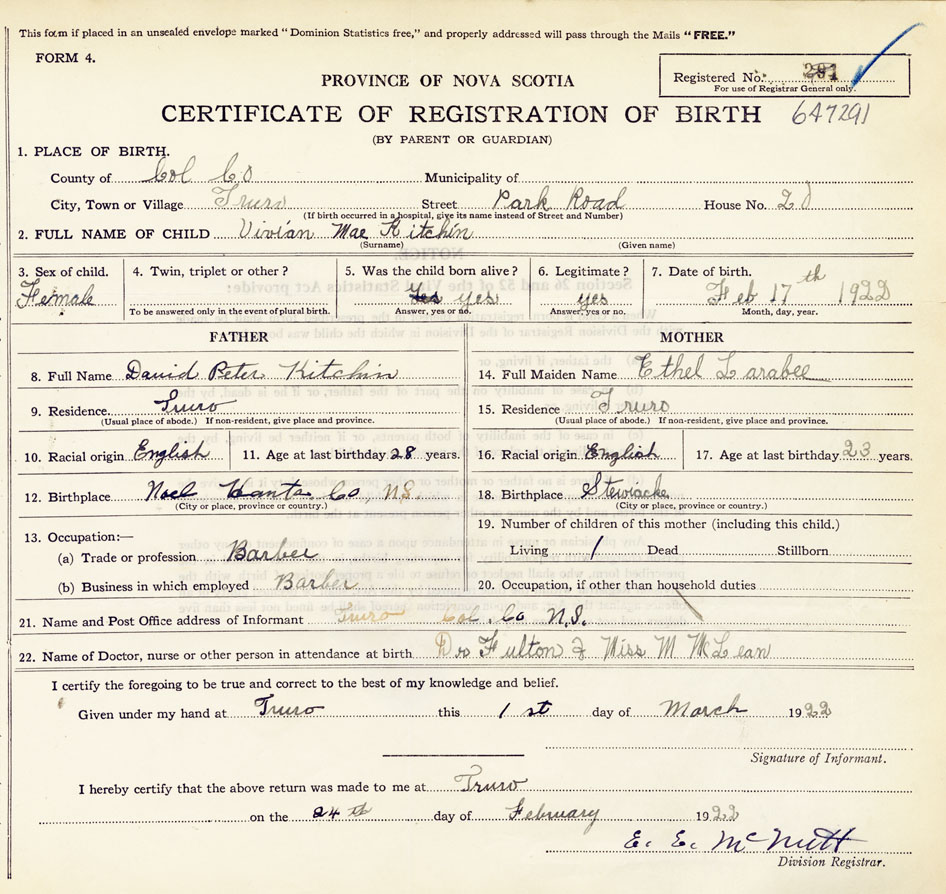 This form if placed in an unsealed envelope marked "Dominion Statistics free," and properly addressed will pass through the Mails "FREE."
FORM 4.
Registered No. 291
For use of Registrar General only.
PROVINCE OF NOVA SCOTIA
CERTIFICATE OF REGISTRATION OF BIRTH 647291
(BY PARENT OR GUARDIAN)
1. PLACE OF BIRTH.
County of Col Co Municipality of
City, Town or Village Truro Street Park Road House No. 20
(If birth occurred in a hospital, give its name instead of Street and Number)
2. FULL NAME OF CHILD Vivian Mae Kitchin
(Surname) (Given name)
3. Sex of child. 4. Twin, triplet or other? 5. Was the child born alive? 6. Legitimate? 7. Date of birth.
Female Yes yes yes Feb 17th 1922
To be answered only in the event of plural birth. Answer, yes or no. Answer, yes or no. Month, day, year.
FATHER MOTHER
8. Full Name David Peter Kitchin 14. Full Maiden Name Ethel Larabee
9. Residence. Truro 15. Residence Truro
(Usual place of abode.) If non-resident, give place and province. (Usual place of abode.) If non-resident, give place and province.
10. Racial origin English 11. Age at last birthday 28 years. 16. Racial origin English 17. Age at last birthday 23 years.
12. Birthplace Noel Hants Co, N.S. 18. Birthplace Stewiacke
(City or place, province or country.) (City or place, province or country.)
19. Number of children of this mother (including this child.)
13. Occupation:—
(a) Trade or profession Barber Living 1 Dead Stillborn
(b) Business in which employed Barber 20. Occupation, if other than household duties
21. Name and Post Office address of Informant Truro Col. Co N.S.
22. Name of Doctor, nurse or other person in attendance at birth Dr Fulton & Miss M McLean
I certify the foregoing to be true and correct to the best of my knowledge and belief.
Given under my hand at Truro this 1st day of March 1922
Signature of Informant.
I hereby certify that the above return was made to me at Truro
on the 24th day of February 1922
E. E. McNutt
Division Registrar.